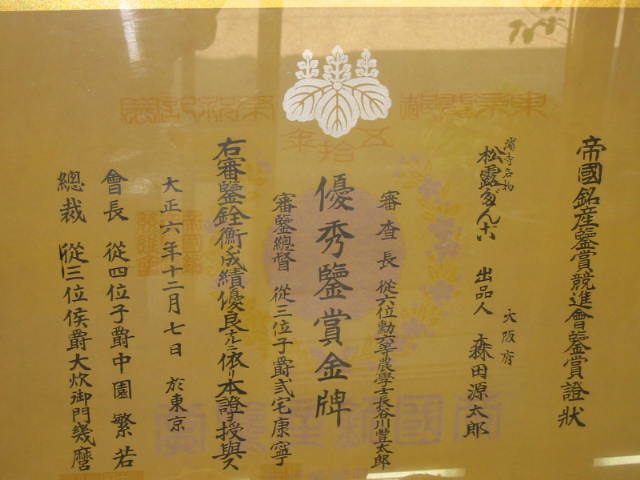 帝國銘産鑒賞競進會鑒賞證狀
濱寺名物
松露だんご
大阪府
出品人 森田源太郎
審査長 從六位勲六等農學士長谷川豊太郎
優秀鑒賞金牌
審鑒總督 從三位子爵弍宅康寧
右審鑒銓衡ノ成績優良ナルニ依リ本證ヲ授與ス
大正六年十二月七日 於東京
會長 從四位子爵中園繁若
總裁 從三位侯爵大炊御門幾麿
五拾年
東京
帝國銘